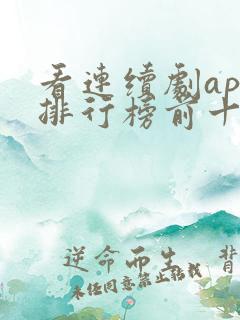 看連續劇ap
排行榜前十
逆命而生 背
未经同意禁止转载